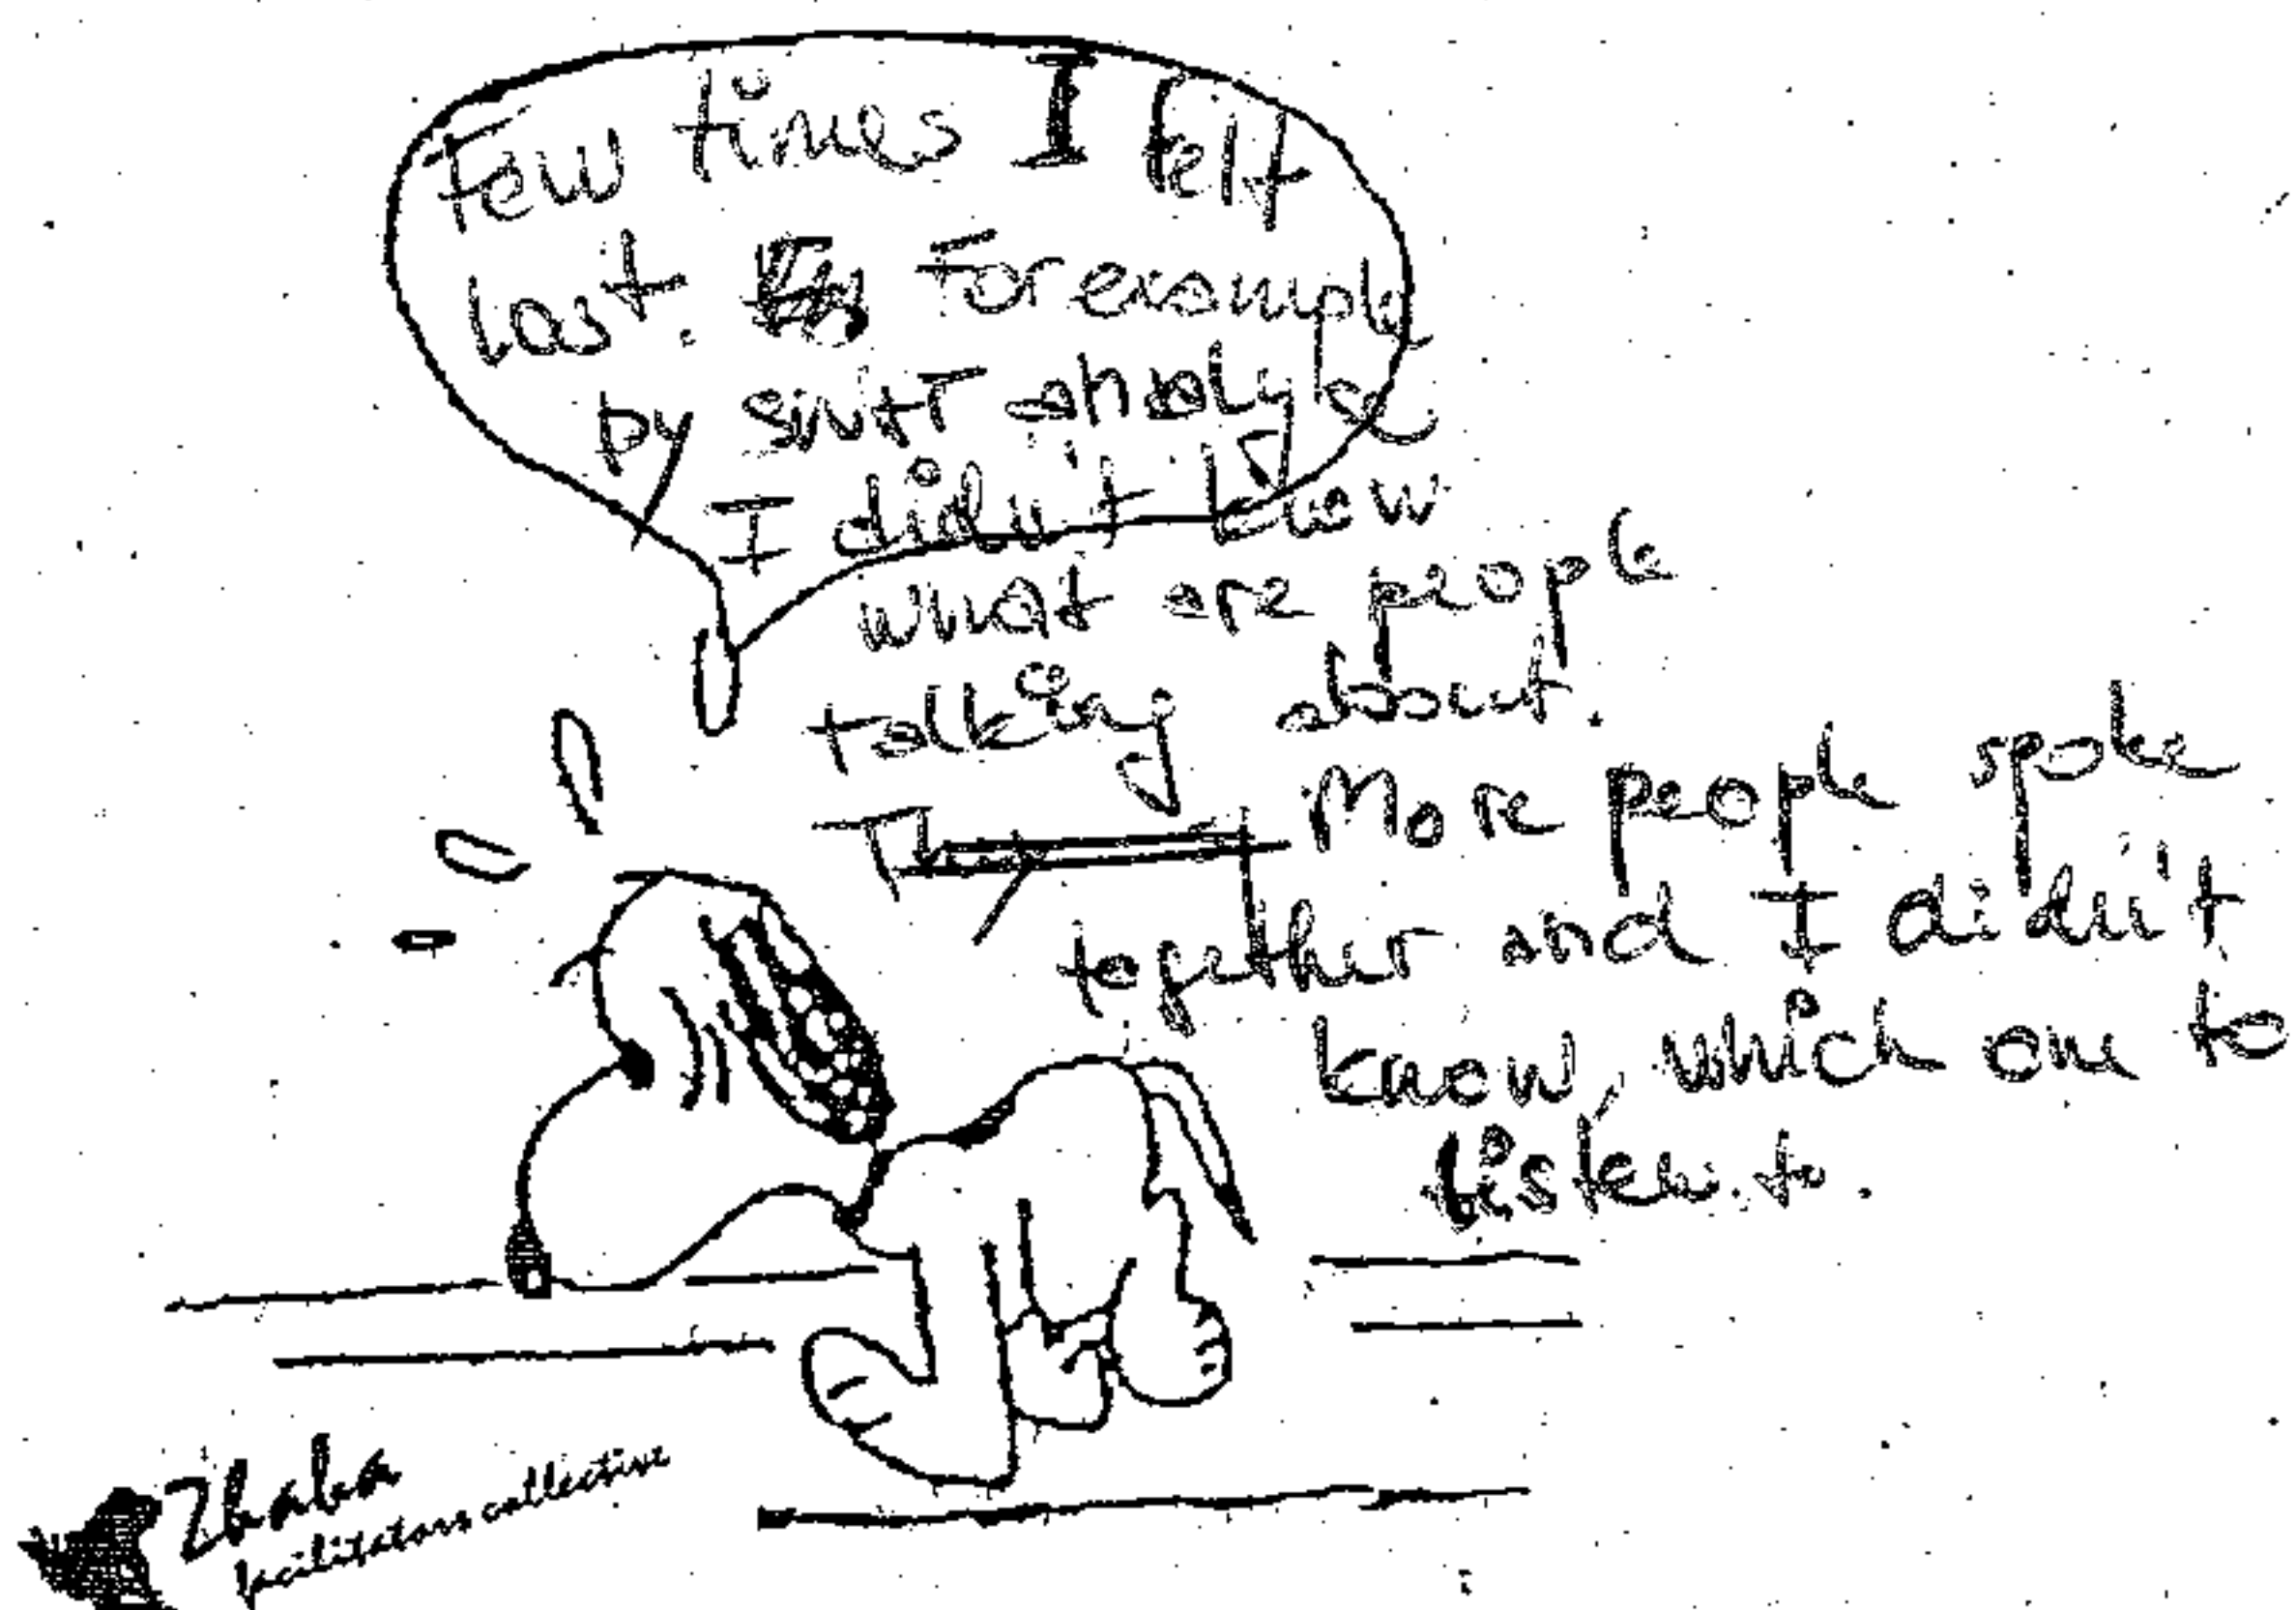 Few times I felt
lost. For example
by
I didn't know
what are people
talking about.
More people spoke
together and I didn't
know, which one to
listen to.
Zhaba
facilitators collective